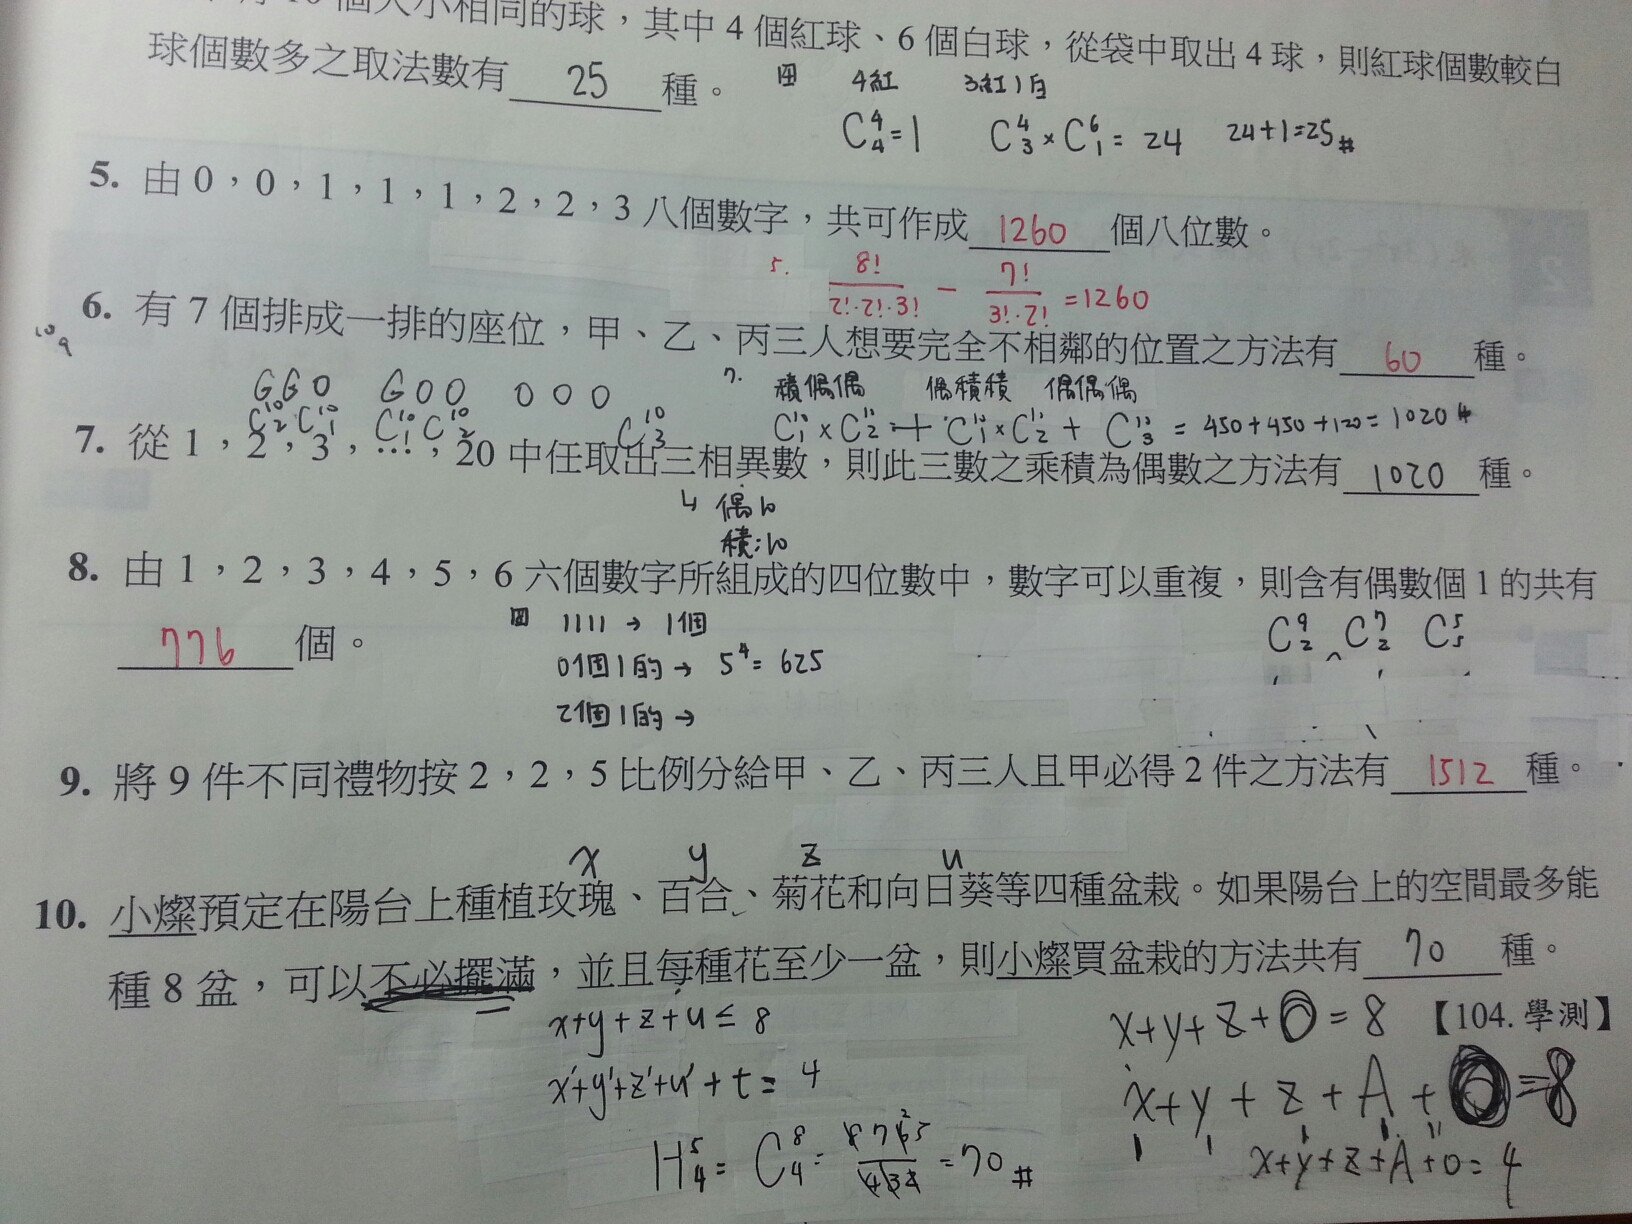 個大小相同的球，其中 4 個紅球、6 個白球，從袋中取出 4 球，則紅球個數較白
球個數多之取法數有 25 種。
4紅 3紅1白
C⁴₄=1 C⁴₃×C⁶₁= 24 24+1=25#
5. 由 0，0，1，1，1，2，2，3 八個數字，共可作成 1260 個八位數。
5. 8!/(2!·2!·3!) − 7!/(3!·2!) =1260
6. 有 7 個排成一排的座位，甲、乙、丙三人想要完全不相鄰的位置之方法有 60 種。
10 9
G G O G O O O O O
7. 積偶偶 偶積積 偶偶偶
C¹⁰₂ C¹⁰₁ C¹⁰₁ C¹⁰₂ C¹⁰₃
C¹⁰₁ × C¹⁰₂ + C¹⁰₁ × C¹⁰₂ + C¹⁰₃ = 450+450+120= 1020 #
7. 從 1，2，3，…，20 中任取出三相異數，則此三數之乘積為偶數之方法有 1020 種。
偶10
積:10
8. 由 1，2，3，4，5，6 六個數字所組成的四位數中，數字可以重複，則含有偶數個 1 的共有
776 個。
1111 → 1個
0個1的 → 5⁴= 625
2個1的 →
C⁹₂ C⁷₂ C⁵₅
9. 將 9 件不同禮物按 2，2，5 比例分給甲、乙、丙三人且甲必得 2 件之方法有 1512 種。
x y z u
10. 小燦預定在陽台上種植玫瑰、百合、菊花和向日葵等四種盆栽。如果陽台上的空間最多能
種 8 盆，可以不必擺滿，並且每種花至少一盆，則小燦買盆栽的方法共有 70 種。
【104. 學測】
x+y+z+u≤ 8
x'+y'+z'+u'+t= 4
H⁵₄= C⁸₄= 8 7 6 5/4 3 2 =70 #
x+y+z+O=8
x+y+z+A+O=8
x+y+z+A+O=4